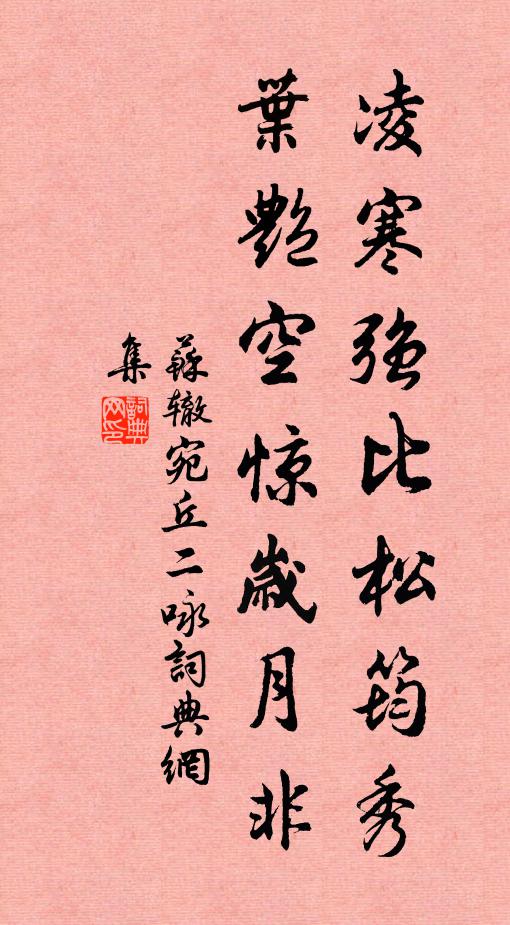 凌寒強比松筠秀
葉艷空惊歲月非
蘇辙宛丘二咏詞典網
集
詞典
网印